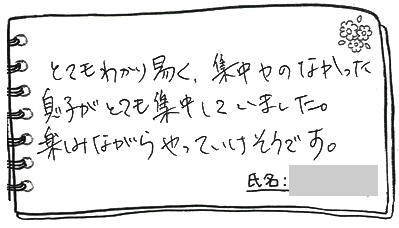 とてもわかり易く、集中力のなかった
息子がとても集中していました。
楽しみながらやっていけそうです。
氏名: